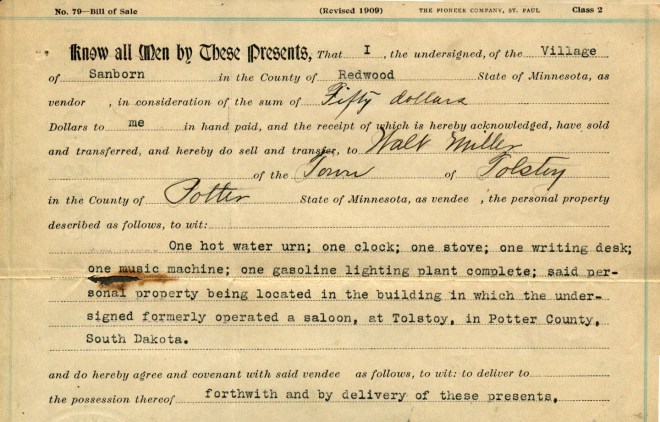 No. 79—Bill of Sale (Revised 1909) THE PIONEER COMPANY, ST. PAUL Class 2
Know all Men by These Presents, That I, the undersigned, of the Village
of Sanborn in the County of Redwood State of Minnesota, as
vendor , in consideration of the sum of Fifty dollars
Dollars to me in hand paid, and the receipt of which is hereby acknowledged, have sold
and transferred, and hereby do sell and transfer, to Walt Miller
of the Town of Tolstoy
in the County of Potter State of Minnesota, as vendee , the personal property
described as follows, to wit:
One hot water urn; one clock; one stove; one writing desk;
one music machine; one gasoline lighting plant complete; said per-
sonal property being located in the building in which the under-
signed formerly operated a saloon, at Tolstoy, in Potter County,
South Dakota.
and do hereby agree and covenant with said vendee as follows, to wit: to deliver to
the possession thereof forthwith and by delivery of these presents,